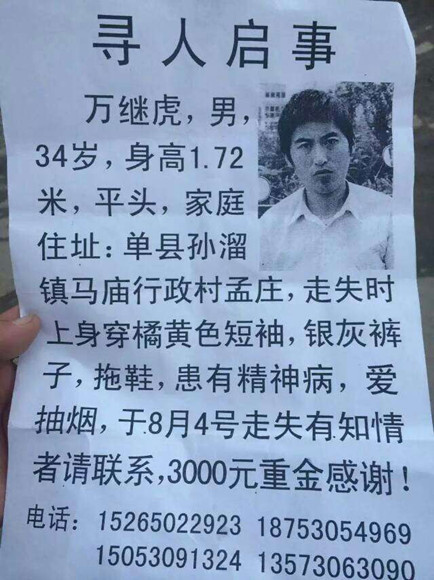 寻人启事
万继虎，男，
34岁，身高1.72
米，平头，家庭
住址：单县孙溜
镇马庙行政村孟庄，走失时
上身穿橘黄色短袖，银灰裤
子，拖鞋，患有精神病，爱
抽烟，于8月4号走失有知情
者请联系，3000元重金感谢！
电话：15265022923 18753054969
15053091324 13573063090